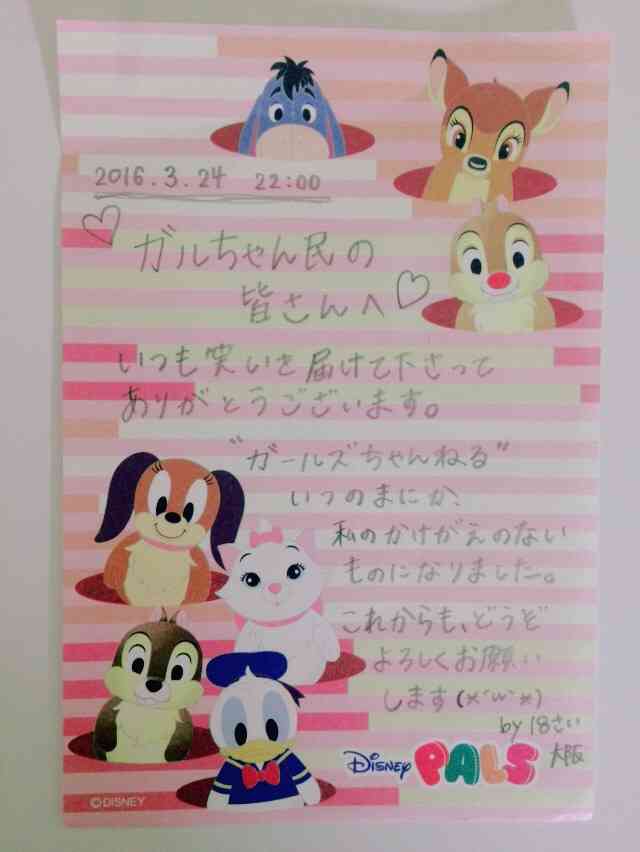 2016.3.24 22:00
♡ガルちゃん民の
皆さんへ♡
いつも笑いを届けて下さって
ありがとうございます。
"ガールズちゃんねる"
いつのまにか、
私のかけがえのない
ものになりました。
これからも、どうぞ
よろしくお願い
します(*´ω`*)
by 18さい
大阪
DISNEY PALS
©DISNEY